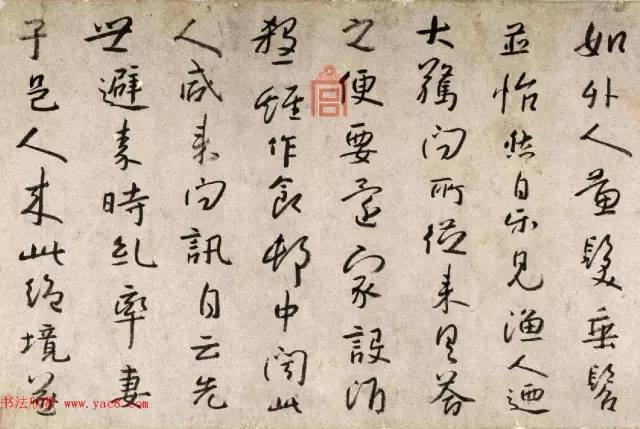 如外人黃髮垂髫
並怡然自樂見漁人廼
大驚問所從来具答
之便要還家設酒
殺雞作食邨中聞此
人咸来問訊自云先
世避秦時乱率妻
子邑人来此絶境
书法欣赏 www.yac8.com